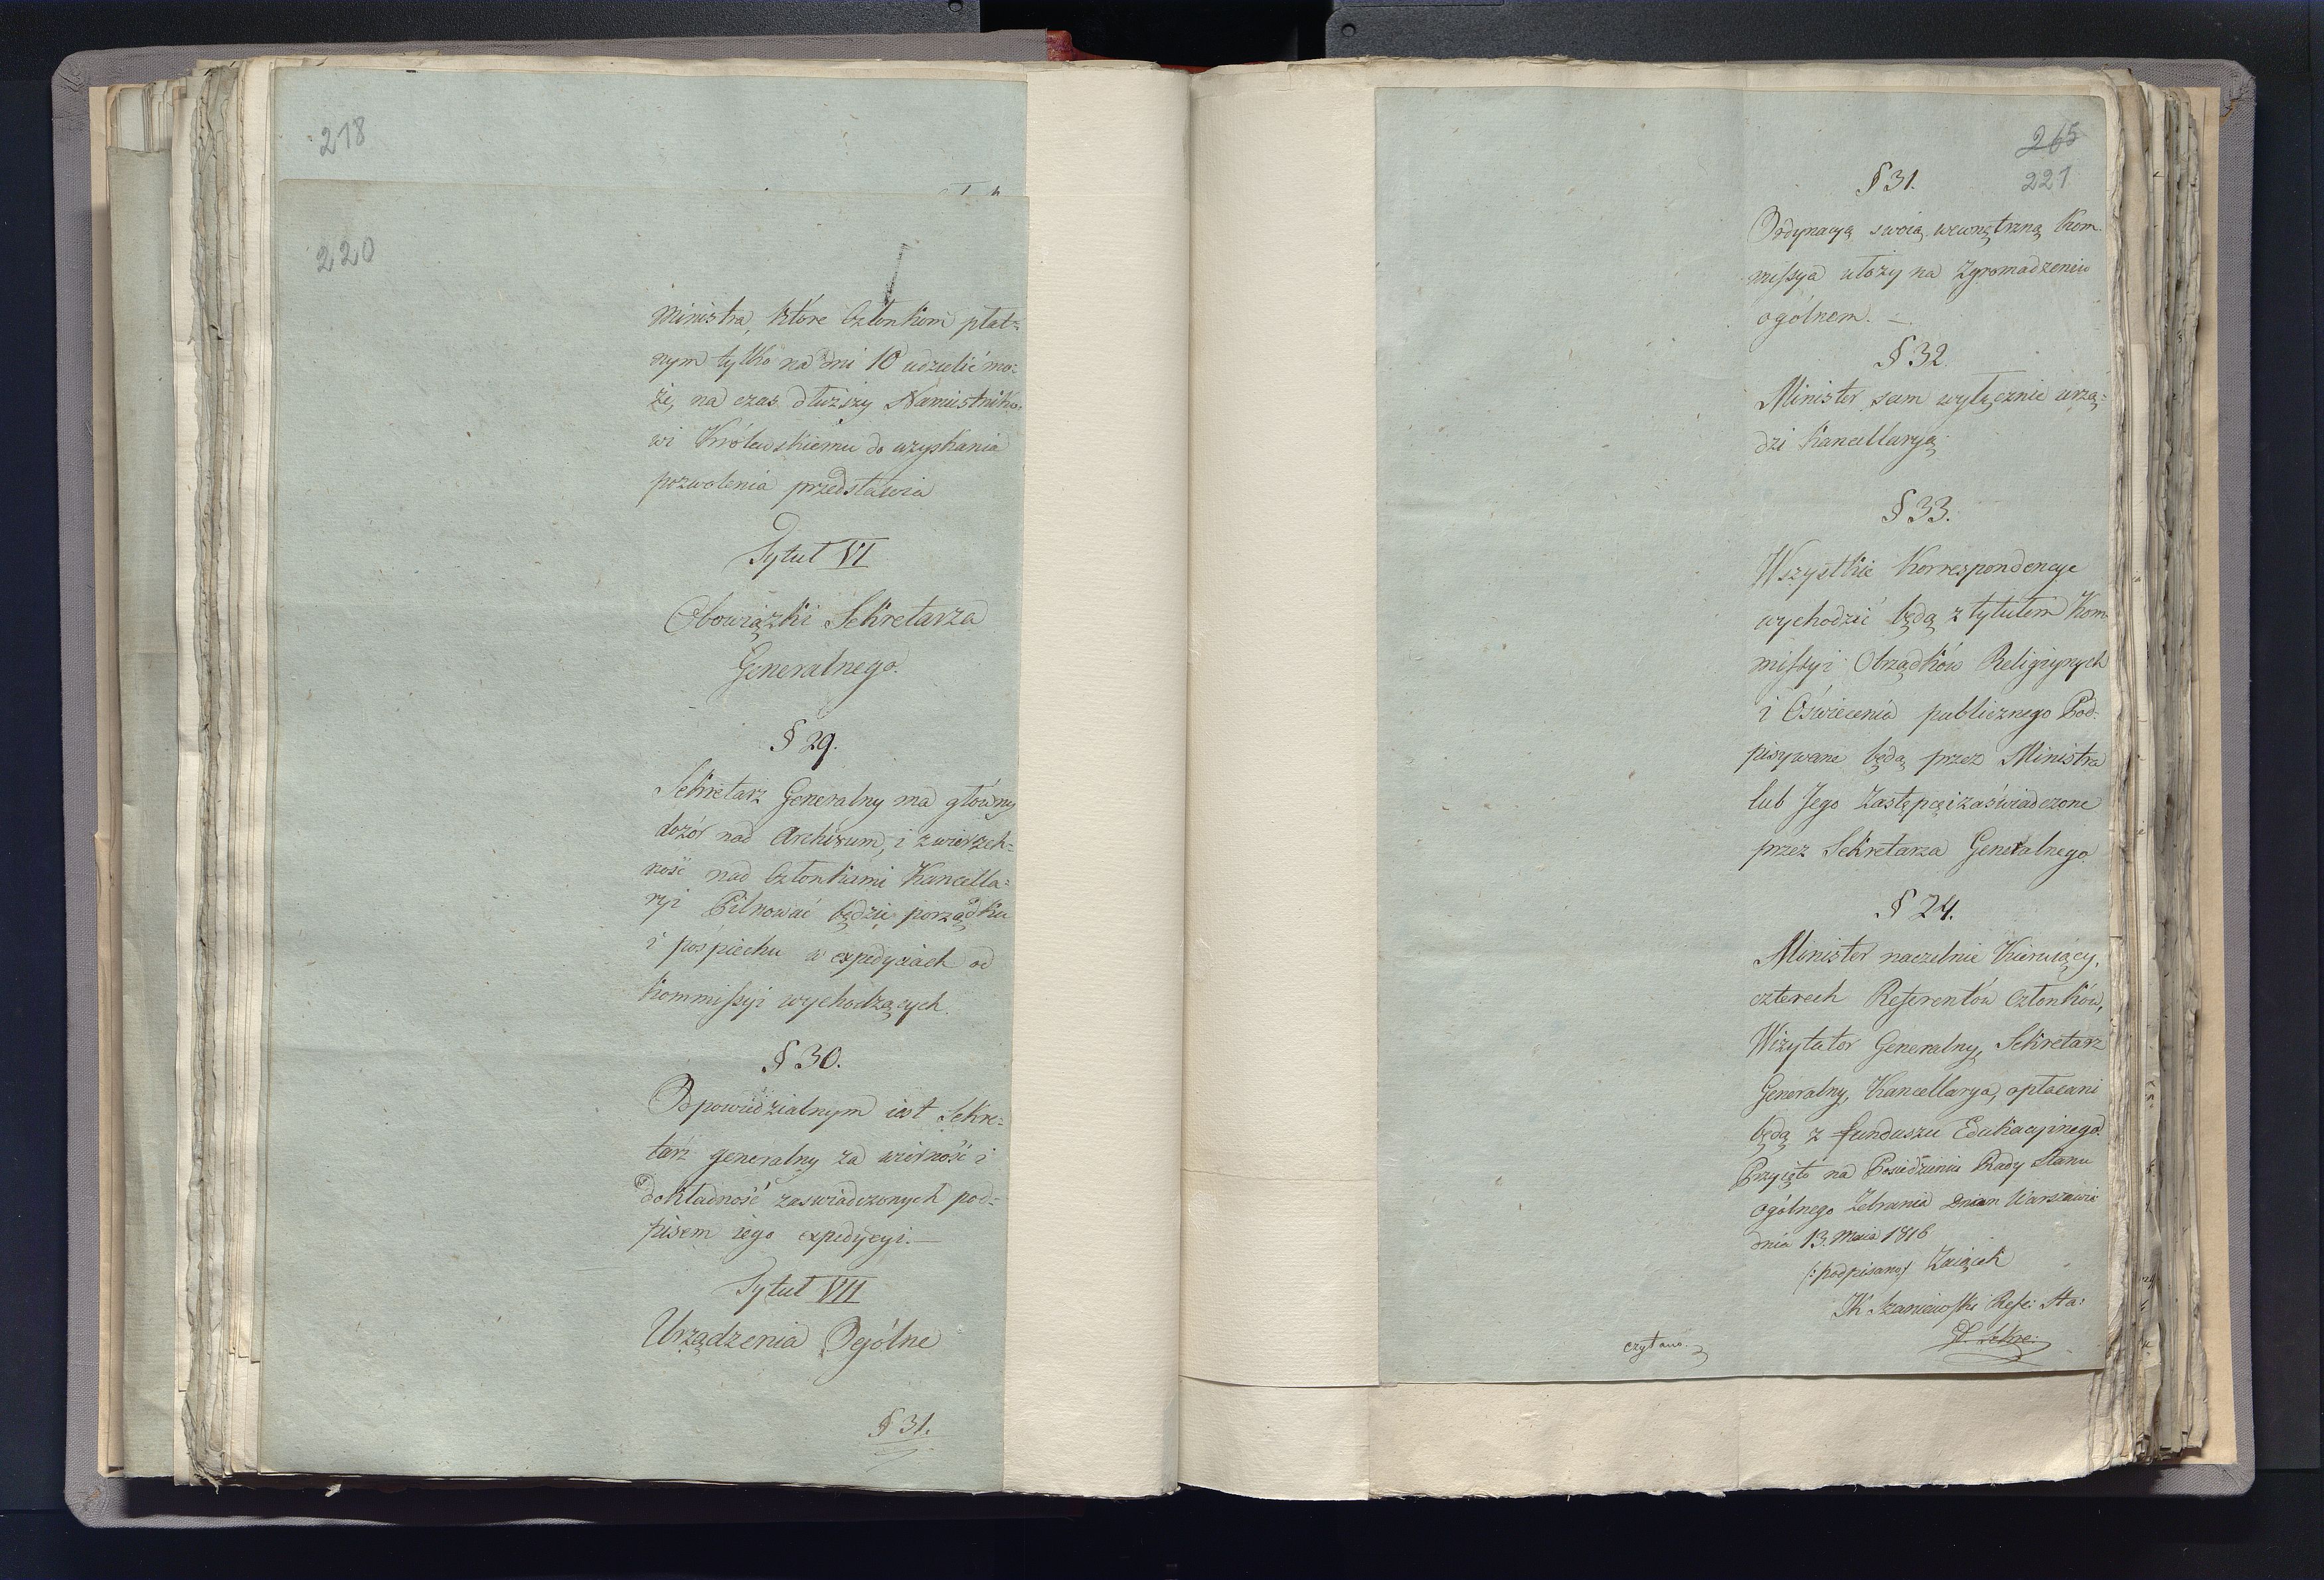 218
220
Ministra, które Członkom płat=
nym tylko na dni 10 udzielić mo=
że, na czas dłuższy Namiestniko=
wi Królewskiemu do uzyskania
pozwolenia przedstawia
Tytuł VI
Obowiązki Sekretarza
Generalnego.
§ 29.
Sekretarz Generalny ma główny
dozór nad Archivum, i zwierzch=
ność nad Członkami Kancella=
ryi Pilnować będzie porządku
i pośpiechu w expedyciach od
Kommissyi wychodzących.
§ 30.
Odpowiedzialnym iest Sekre=
tarz generalny za wierność i
dokładność zaświadczonych pod=
pisem iego expedycyi.—
Tytuł VII
Urządzenia Ogólne
§ 31.
265
221
§ 31.
Ordynacyą swoią wewnętrzną Kom=
missya ułoży na Zgromadzeniu
ogólnem. —
§ 32.
Minister sam wyłącznie urzą=
dzi Kancellaryą
§ 33.
Wszystkie Korrespondencye
wychodzić będą z tytułem Kom=
missyi Obrządków Religiynych
i Oświecenia publicznego Pod=
pisywane będą przez Ministra
lub Jego Zastępcę i zaświadczone
przez Sekretarza Generalnego
§ 24.
Minister naczelnie Kieruiący,
czterech Referentów Członków,
Wizytator Generalny, Sekretarz
Generalny, Kancellarya, opłacani
będą z funduszu Edukacyinego.
Przyięto na Posiedzeniu Rady Stanu
ogólnego Zebrania Warszawie
dnia 13. Maia 1816
/: podpisano/ Zaiączek
JK Szaniawski Refe: Sta:
czytano.